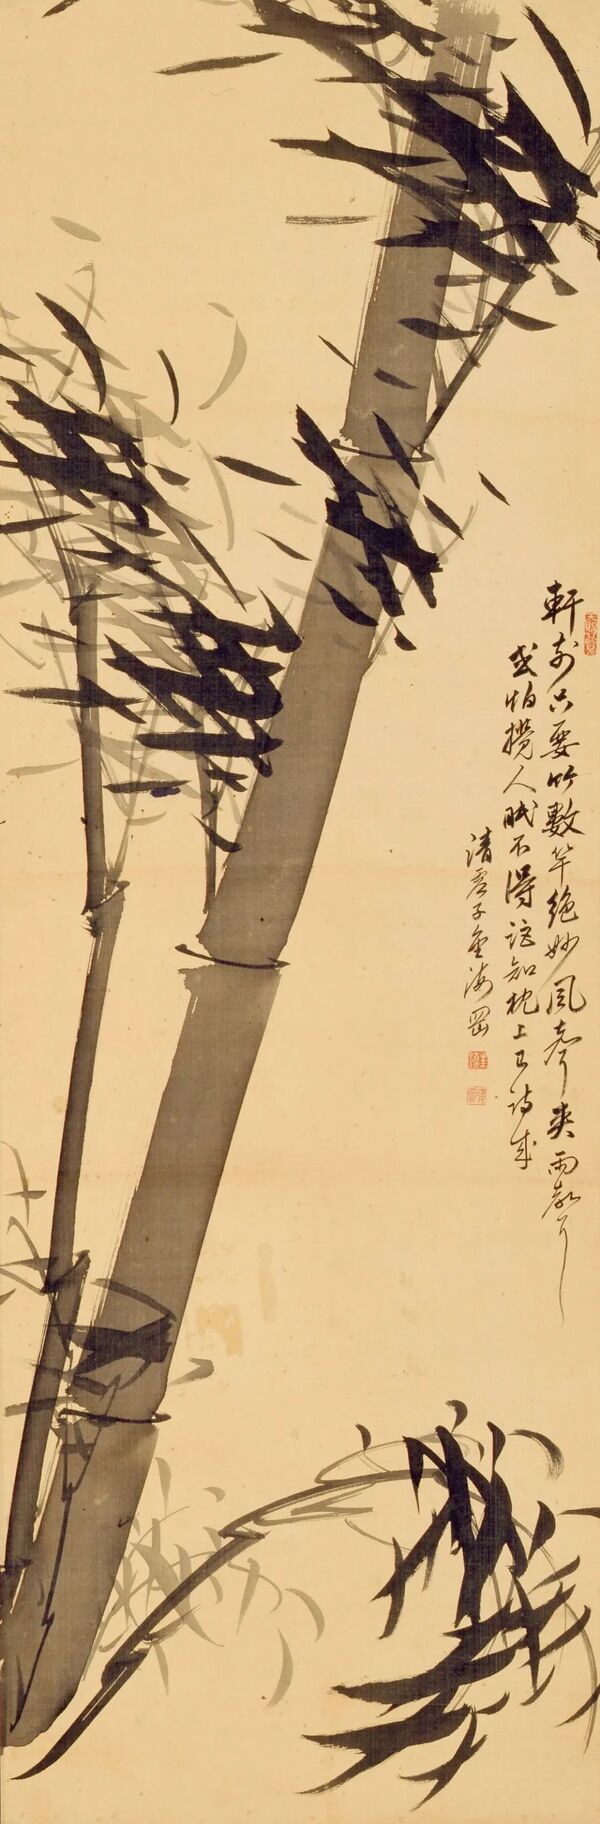 軒前只要竹數竿絕妙風聲夾雨聲
或怕攪人眠不得詎知枕上已詩成
清虛子金海岡